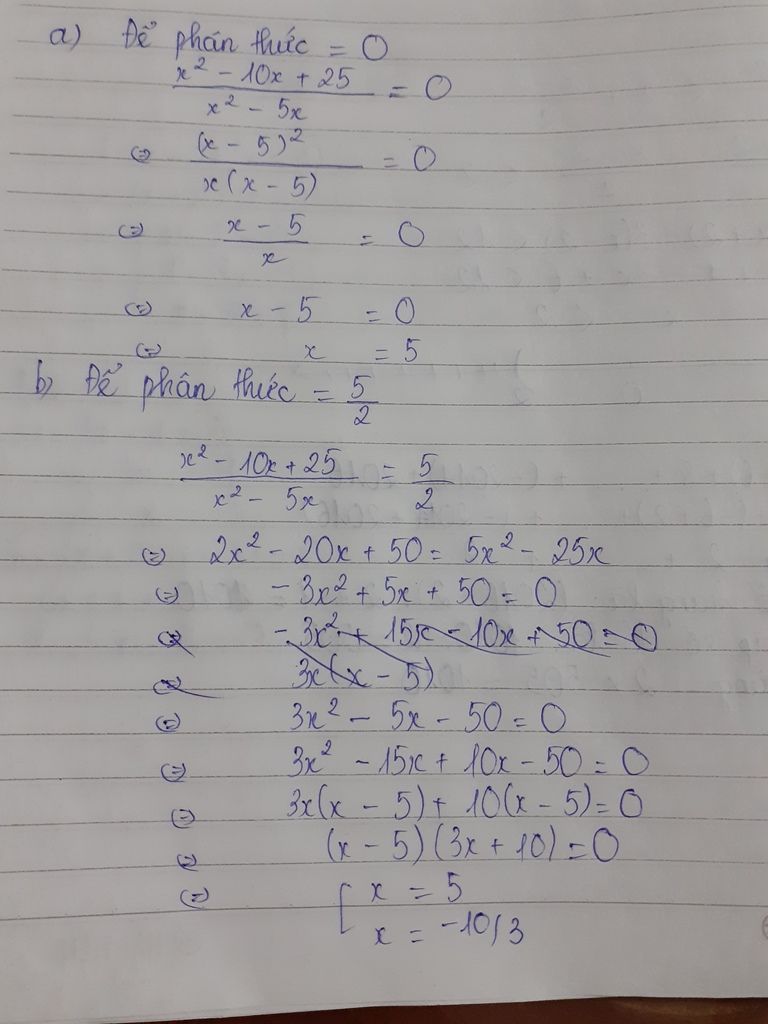 a) Để phân thức = 0
x² - 10x + 25 / x² - 5x = 0
(=) (x - 5)² / x(x - 5) = 0
(=) x - 5 / x = 0
(=) x - 5 = 0
(=) x = 5
b) Để phân thức = 5/2
x² - 10x + 25 / x² - 5x = 5/2
(=) 2x² - 20x + 50 = 5x² - 25x
(=) -3x² + 5x + 50 = 0
(=) -3x² + 15x - 10x + 50 = 0
(=) 3x(x - 5)
(=) 3x² - 5x - 50 = 0
(=) 3x² - 15x + 10x - 50 = 0
(=) 3x(x - 5) + 10(x - 5) = 0
(=) (x - 5)(3x + 10) = 0
(=) [ x = 5
x = -10/3